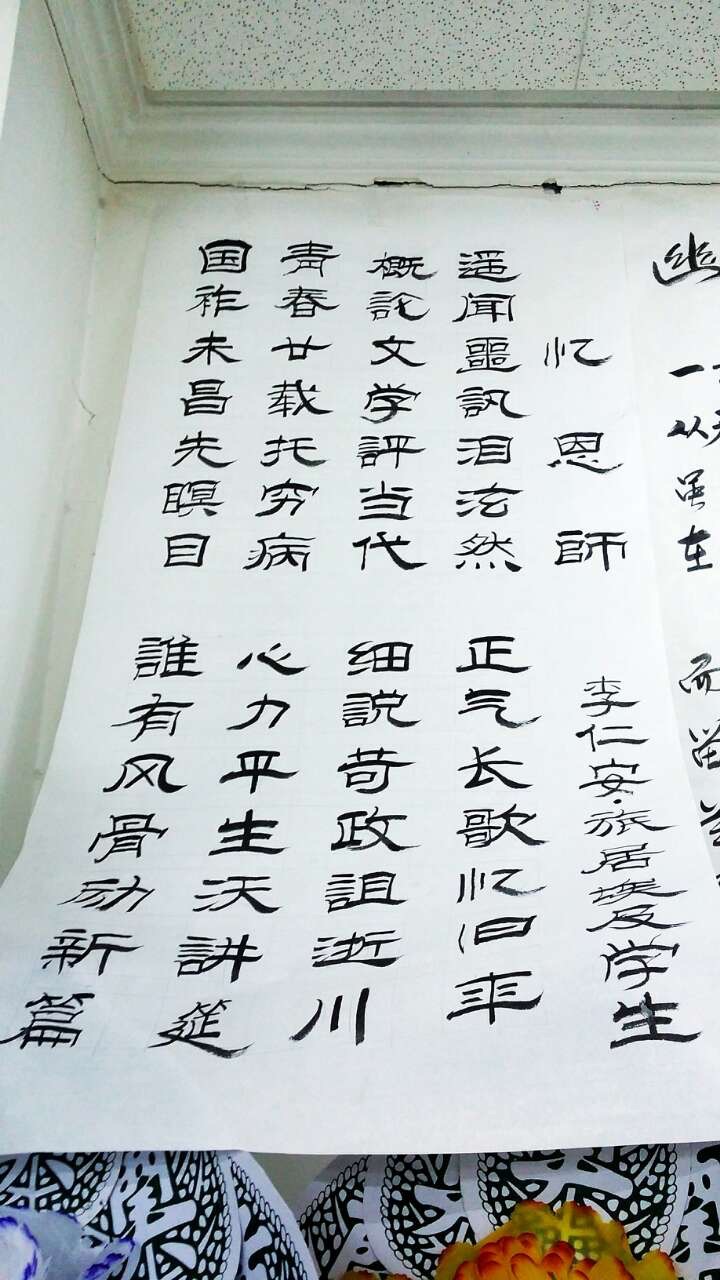 忆恩師
李仁安·旅居埃及学生
遥闻噩訊泪泫然 正气长歌忆旧年
概論文学評当代 细説苛政詛逝川
青春廿载托穷病 心力平生沃講筵
国祚未昌先瞑目 誰有风骨励新篇